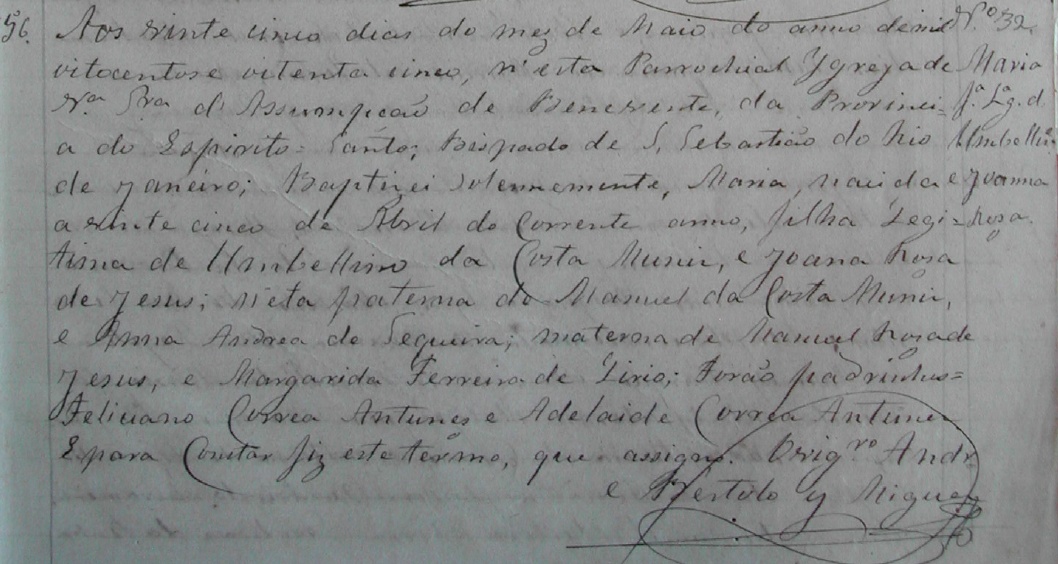 56.
Aos vinte cinco dias do mez de Maio do anno de mil
oitocentos e oitenta cinco, n'esta Parrochial Ygreja de
Nra. Sra. d'Assumpção de Benevente, da Provinci=
a do Espirito=Santo; Bispado de S. Sebastião do Rio
de Janeiro; Baptizei Solennemente, Maria, nascida
a vinte cinco de Abril do Corrente anno, filha Legi=
tima de Umbellino da Costa Muniz, e Joana Rosa
de Jesus; neta paterna de Manuel da Costa Muniz,
e Anna Andrea de Sequeira; materna de Manuel Rosa de
Jesus, e Margarida Ferreira de Lirio; Forão padrinhos=
Feliciano Correa Antunes e Adelaide Correa Antunes
E para Constar fiz este termo, que assigno. Vrigro. Andr
e Bertolo y Miguez
Nº 32
Maria
fª. Lg. d.
Umbellin
e Joanna
Rosa.